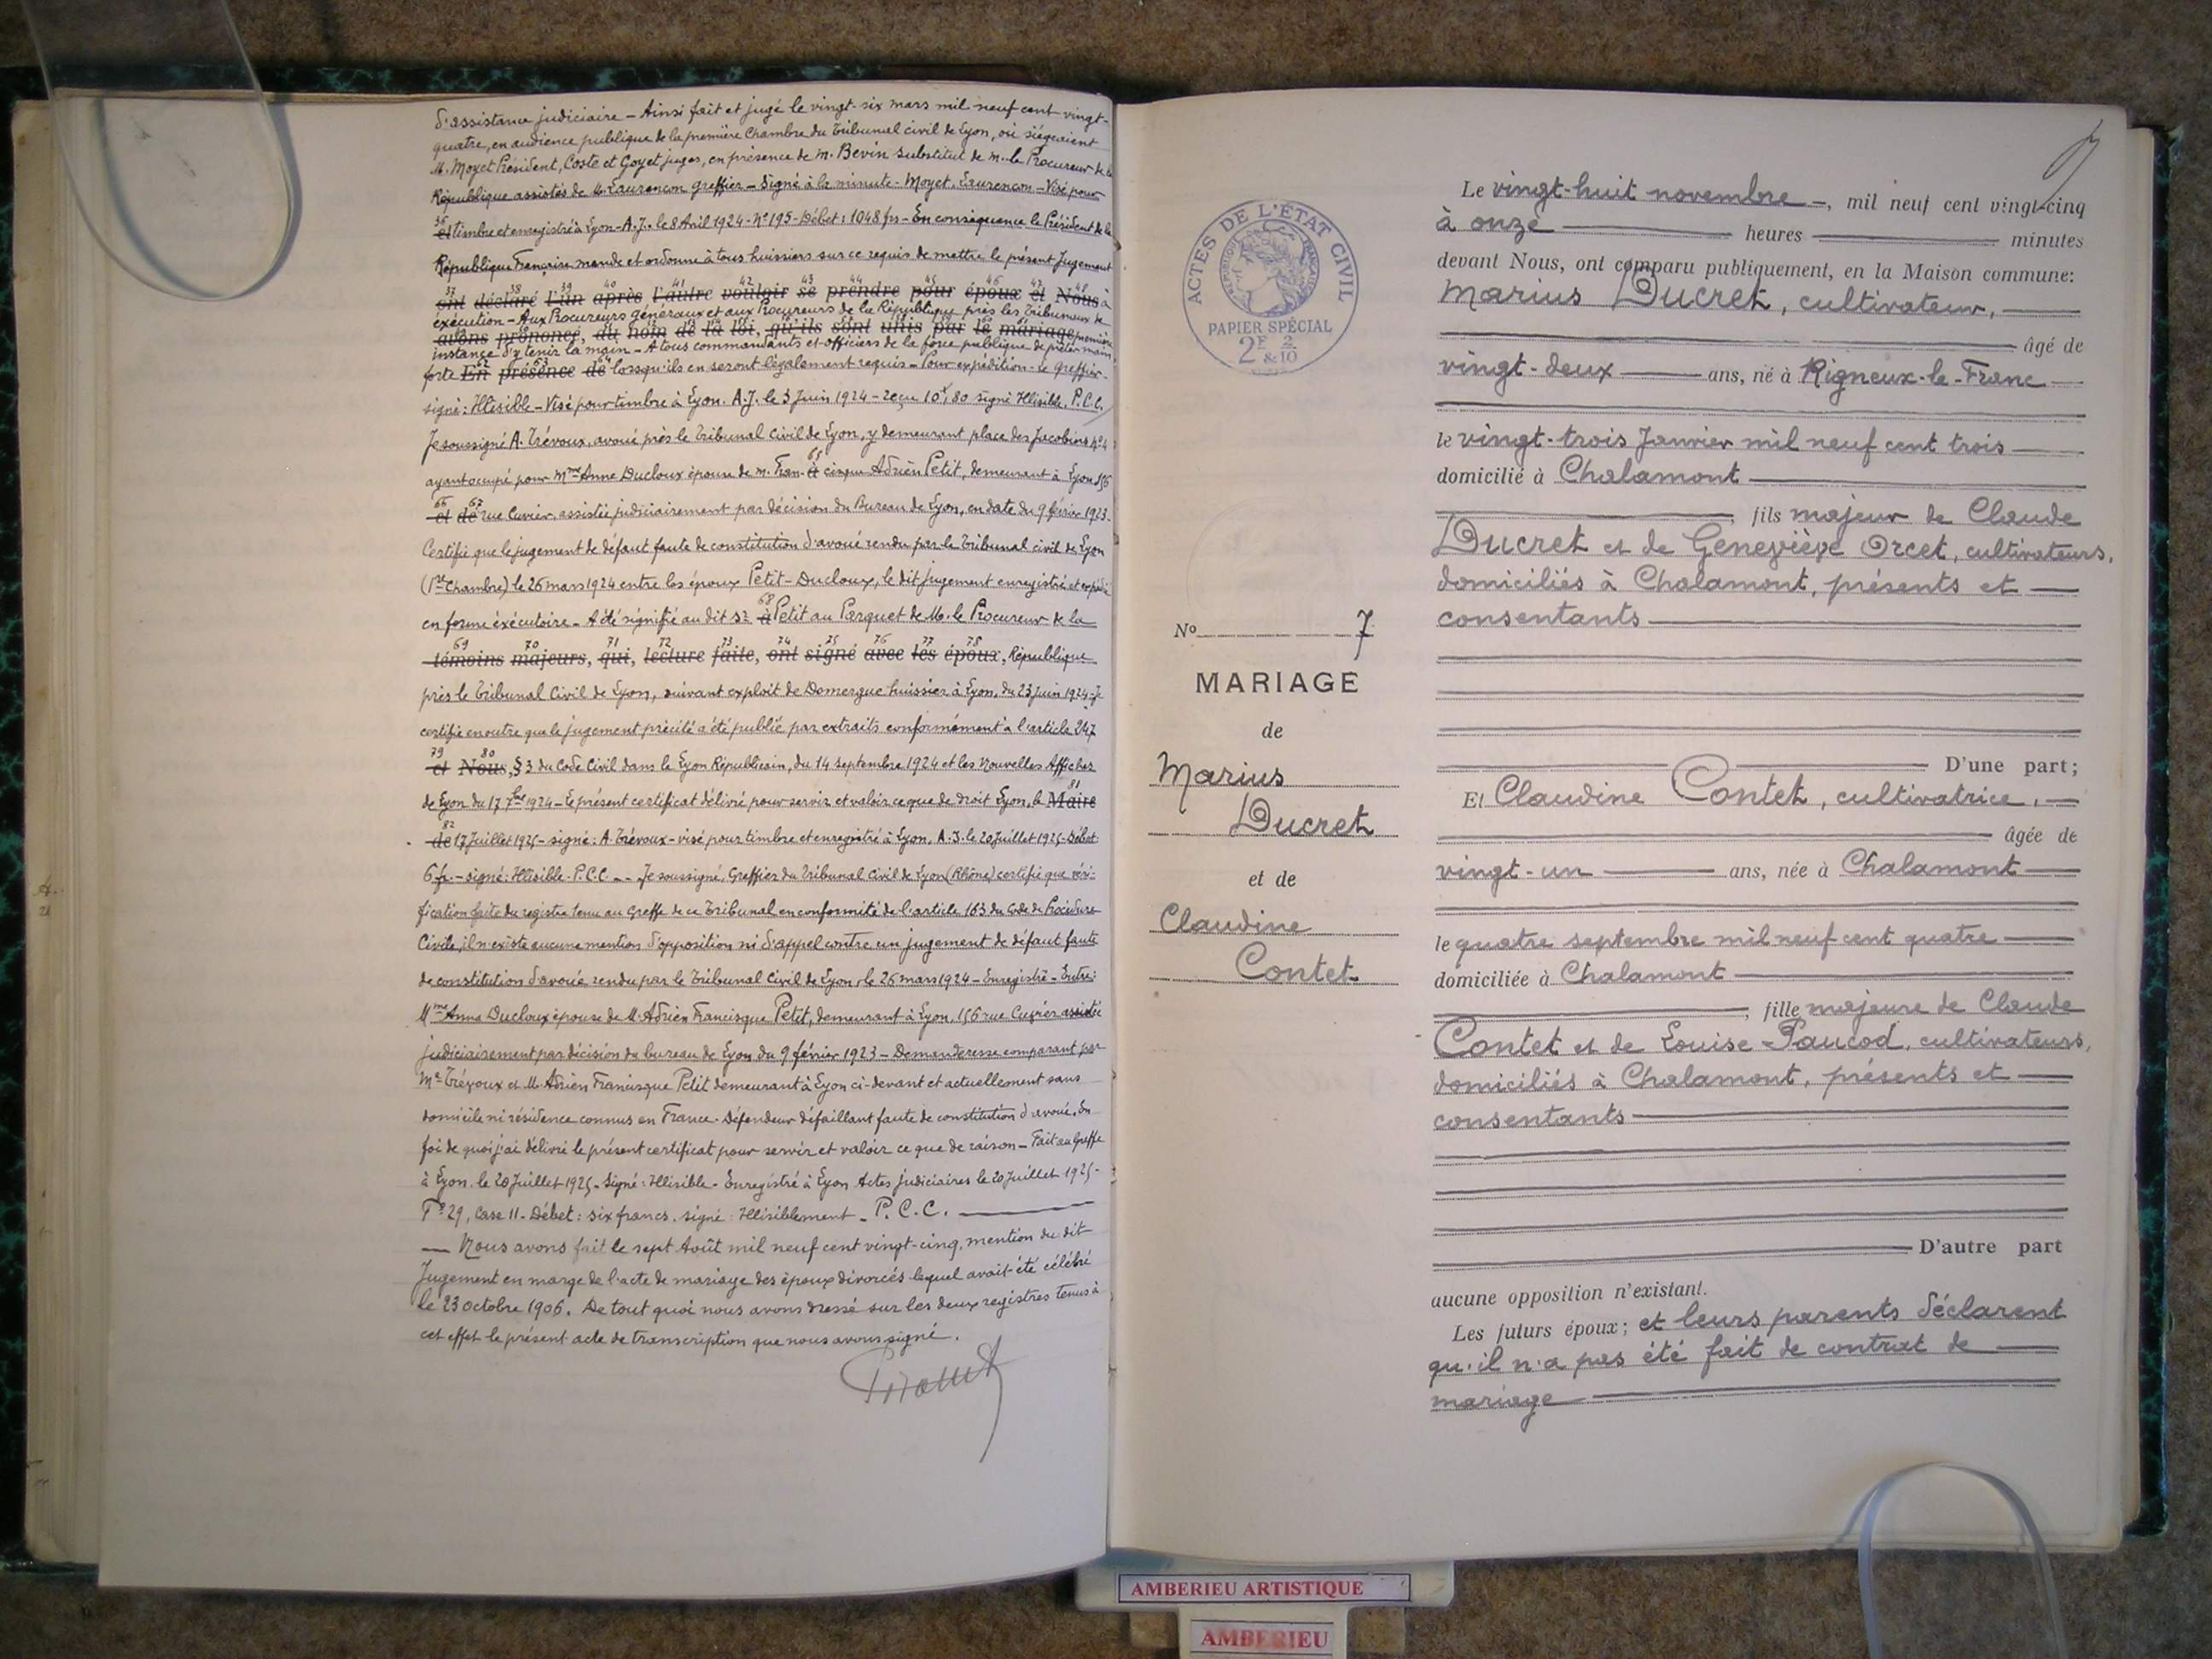 d'assistance judiciaire – Ainsi fait et jugé le vingt-six mars mil neuf cent vingt-
quatre, en audience publique de la première Chambre du Tribunal civil de Lyon, où siégeaient
M. Moyet Président, Coste et Goyet juges, en présence de M. Bevin substitut de M. le Procureur de la
République assistés de M. Laurençon greffier – Signé à la minute – Moyet, Laurençon – Visé pour
36
et timbre et enregistré à Lyon – A.J. – le 8 Avril 1924 – N° 195 – Débet : 1048 frs – En conséquence le Président de la
République Française mande et ordonne à tous huissiers sur ce requis de mettre le présent Jugement
37 38 39 40 41 42 43 44 45 46 47 48
ont déclaré l'un après l'autre vouloir se prendre pour époux et Nous à
exécution – Aux Procureurs généraux et aux Procureurs de la République près les Tribunaux de
avons prononcé, au nom de la loi, qu'ils sont unis par le mariage première
instance d'y tenir la main – A tous commandants et officiers de la force publique de prêter main
forte En présence de lorsqu'ils en seront légalement requis – Pour expédition – le greffier –
signé : Illisible – Visé pour timbre à Lyon. A.J. le 3 Juin 1924 – reçu 10f,80 signé Illisible. P.C.C.
Je soussigné A. Trévoux, avoué près le Tribunal Civil de Lyon, y demeurant place des Jacobins N° 4
65
ayant occupé pour Mme Anne Ducloux épouse de M. Fran- à cisque Adrien Petit, demeurant à Lyon 156
66 67
et de rue Cuvier, assistée judiciairement par décision du Bureau de Lyon, en date du 9 février 1923.
Certifie que le jugement de défaut faute de constitution d'avoué rendu par le Tribunal civil de Lyon
(1re Chambre) le 26 mars 1924 entre les époux Petit – Ducloux, le dit jugement enregistré et expédié
68
en forme éxécutoire – A été signifié au dit Sr à Petit au Parquet de M. le Procureur de la
69 70 71 72 73 74 75 76 77 78
témoins majeurs, qui, lecture faite, ont signé avec les époux, République
près le Tribunal Civil de Lyon, suivant exploit de Domergue huissier à Lyon, du 23 juin 1924 – Je
certifie en outre que le jugement précité a été publié par extraits conformément à l'article 247
79 80
et Nous, § 3 du Code Civil dans le Lyon Républicain, du 14 septembre 1924 et les Nouvelles Affiches
81
de Lyon du 17 7bre 1924 – Le présent certificat délivré pour servir et valoir ce que de droit Lyon, le Maire
82
de 17 Juillet 1925 – signé : A. Trévoux – visé pour timbre et enregistré à Lyon, A.J. le 20 Juillet 1925 – Débet
6 fr. – signé : Illisible – P.C.C. – Je soussigné, Greffier du Tribunal Civil de Lyon (Rhône) certifie que véri-
fication faite du registre tenu au Greffe de ce Tribunal en conformité de l'article 163 du Code de Procédure
Civile, il n'existe aucune mention d'opposition ni d'appel contre un jugement de défaut faute
de constitution d'avoué rendu par le Tribunal Civil de Lyon, le 26 mars 1924 – Enregistré – Entre:
Mme Anna Ducloux épouse de M. Adrien Francisque Petit, demeurant à Lyon, 156 rue Cuvier assistée
judiciairement par décision du bureau de Lyon du 9 février 1923 – Demanderesse comparant par
Me Trévoux et M. Adrien Francisque Petit demeurant à Lyon ci-devant et actuellement sans
domicile ni résidence connus en France – Défendeur défaillant faute de constitution d'avoué. En
foi de quoi j'ai délivré le présent certificat pour servir et valoir ce que de raison – Fait au Greffe
à Lyon. le 20 Juillet 1925 – Signé : Illisible – Enregistré à Lyon Actes judiciaires le 20 Juillet 1925 –
F° 29, Case 11 – Débet : six francs. signé : Illisiblement – P.C.C. –
– Nous avons fait le sept Août mil neuf cent vingt-cinq, mention du dit
Jugement en marge de l'acte de mariage des époux divorcés lequel avait été célébré
le 23 octobre 1906. De tout quoi nous avons dressé sur les deux registres tenus à
cet effet le présent acte de transcription que nous avons signé.
ACTES DE L'ÉTAT CIVIL
PAPIER SPÉCIAL
2F 2/10
&
N° 7
MARIAGE
de
Marius
Ducret
et de
Claudine
Contet
Le vingt-huit novembre –, mil neuf cent vingt-cinq
à onze heures minutes
devant Nous, ont comparu publiquement, en la Maison commune:
Marius Ducret, cultivateur,
âgé de
vingt-deux ans, né à Rigneux-le-Franc
le vingt-trois Janvier mil neuf cent trois
domicilié à Chalamont
, fils majeur de Claude
Ducret et de Geneviève Orcet, cultivateurs,
domiciliés à Chalamont, présents et
consentants
D'une part;
Et Claudine Contet, cultivatrice,
âgée de
vingt-un ans, née à Chalamont
le quatre septembre mil neuf cent quatre
domiciliée à Chalamont
, fille majeure de Claude
Contet et de Louise Paucod, cultivateurs,
domiciliés à Chalamont, présents et
consentants
D'autre part
aucune opposition n'existant.
Les futurs époux; et leurs parents déclarent
qu'il n'a pas été fait de contrat de
mariage
AMBERIEU ARTISTIQUE
AMBERIEU